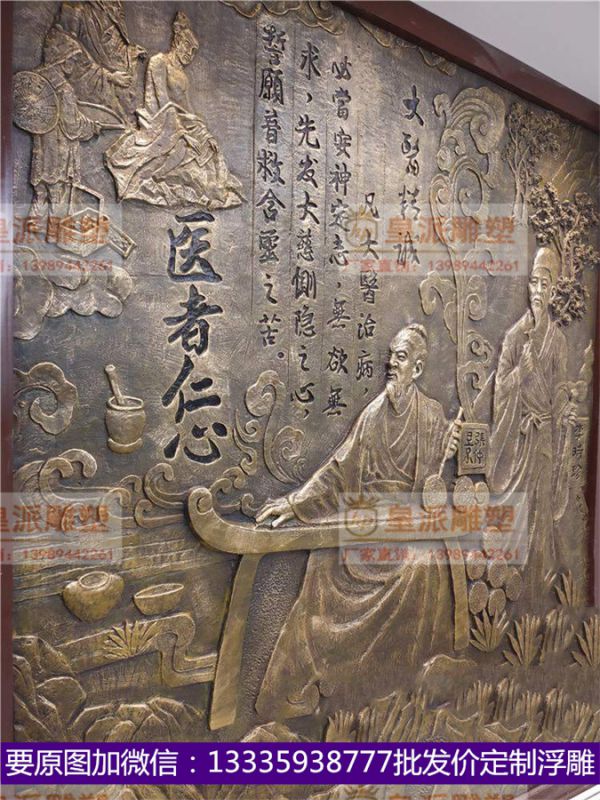 大醫精誠
凡大醫治病，
必當安神定志，無欲無
求，先发大慈恻隐之心，
誓願普救含靈之苦。
医者仁心
張仲
景
李时珍
皇派雕塑
直销：13989442261
皇派雕塑
厂家直销：13989442261
皇派雕塑
直销：13989442261
皇派雕塑
厂家直销：13989442261
要原图加微信：13335938777批发价定制浮雕